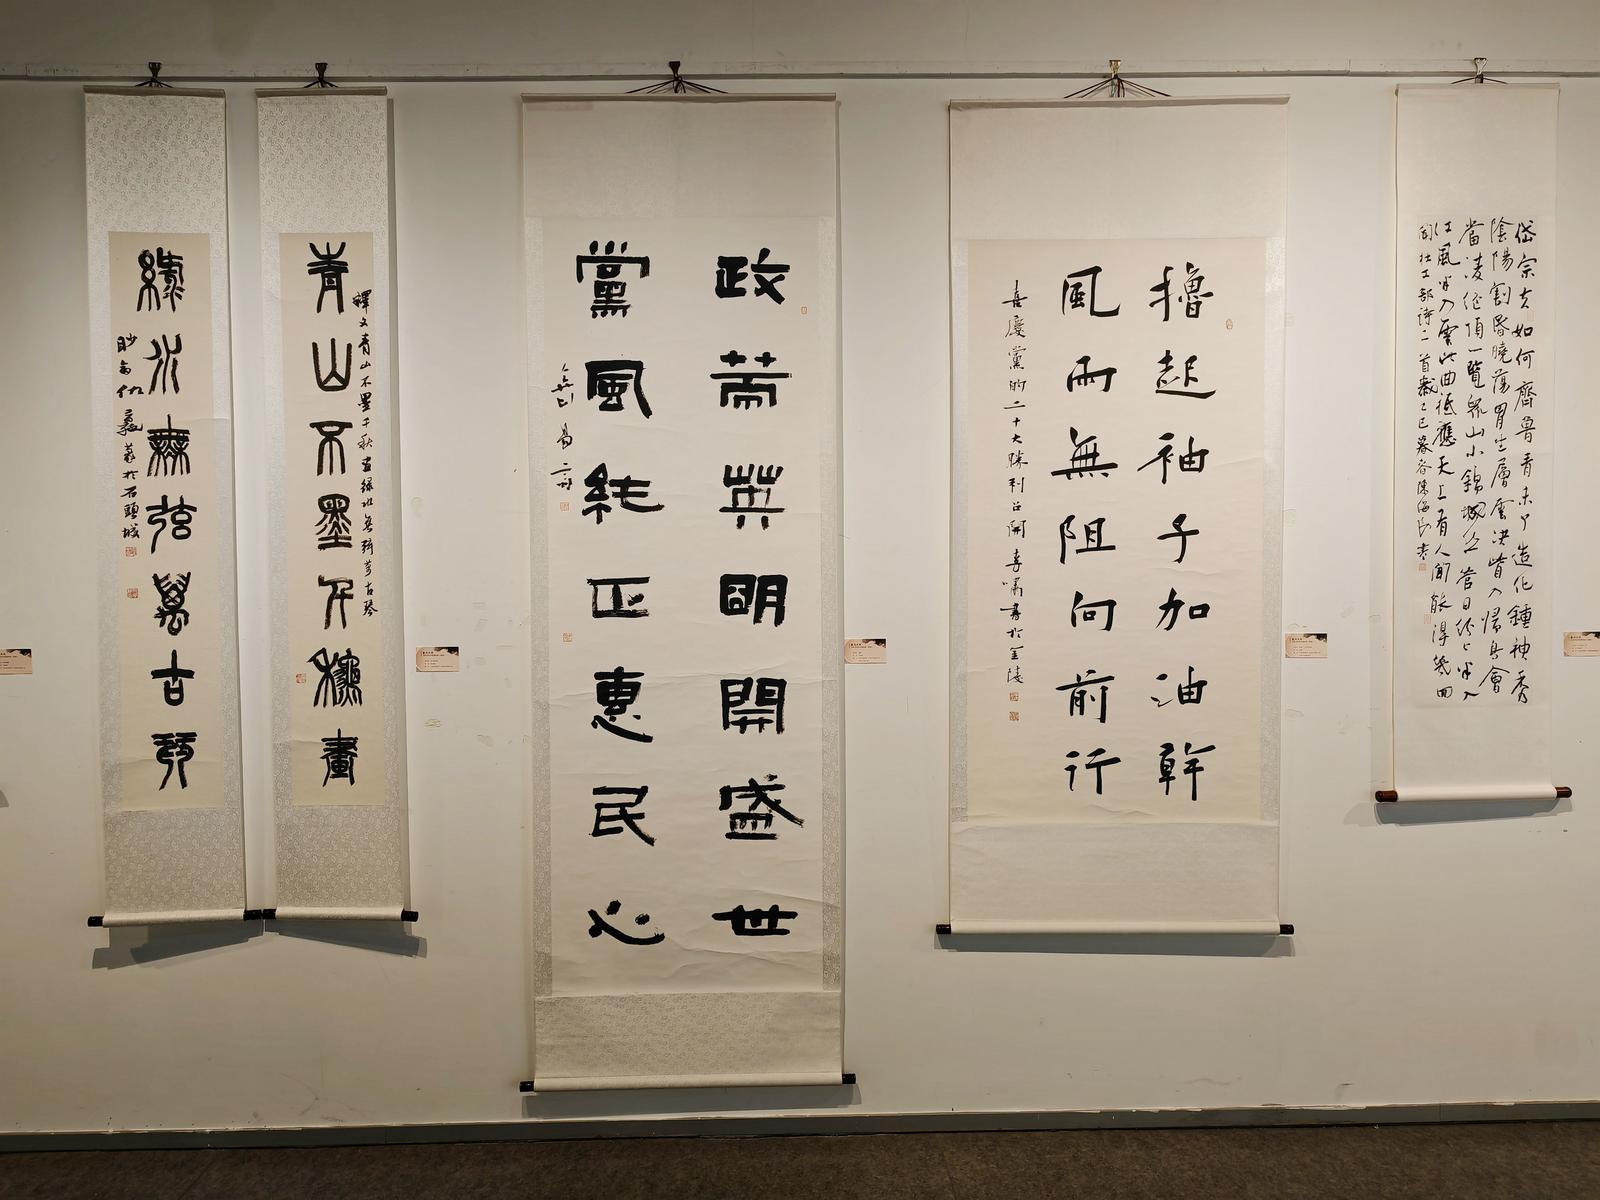 岱宗夫如何齊魯青未了造化鍾神秀
陰陽割昏曉蕩胸生層雲決眥入歸鳥會
當凌絕頂一覽眾山小錦城絲管日紛紛半入
江風半入雲此曲祗應天上有人間能得幾回
聞杜工部詩二首歲乙巳暮春陳海書
擼起袖子加油幹
風雨無阻向前行
喜慶黨的二十大勝利召開李嘯書於金陵
政策英明開盛世
黨風純正惠民心
釋文青山不墨千秋畫綠水無弦萬古琴
青山不墨千秋畫
綠水無弦萬古琴
於石頭城